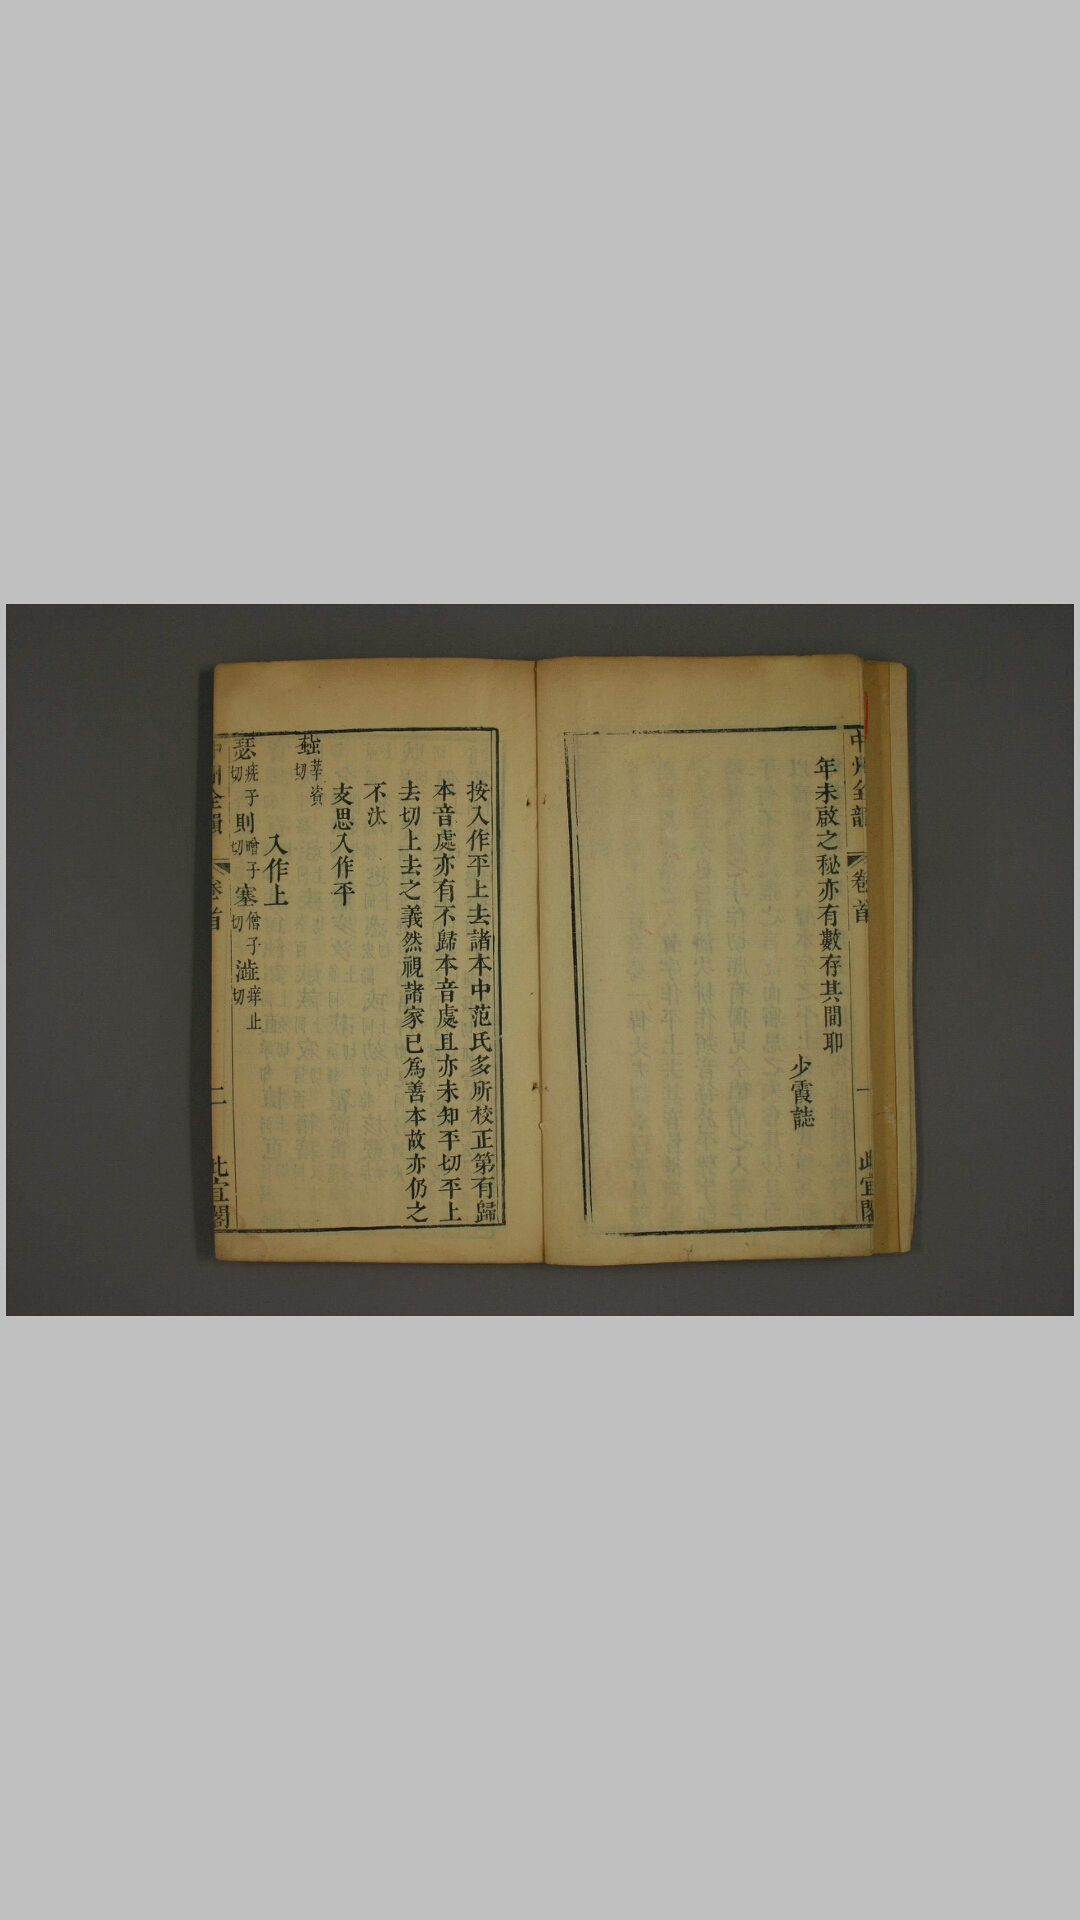 中州全韻 卷首 一 此宜閣
年未啟之秘亦有數存其間耶
少霞誌
按入作平上去諸本中范氏多所校正第有歸
本音處亦有不歸本音處且亦未知平切平上
去切上去之義然視諸家已爲善本故亦仍之
不汰
支思入作平
入作上
瑟 切 則 子切 塞 僧子切 澁 痒止切
中州全韻 卷首 二 此宜閣